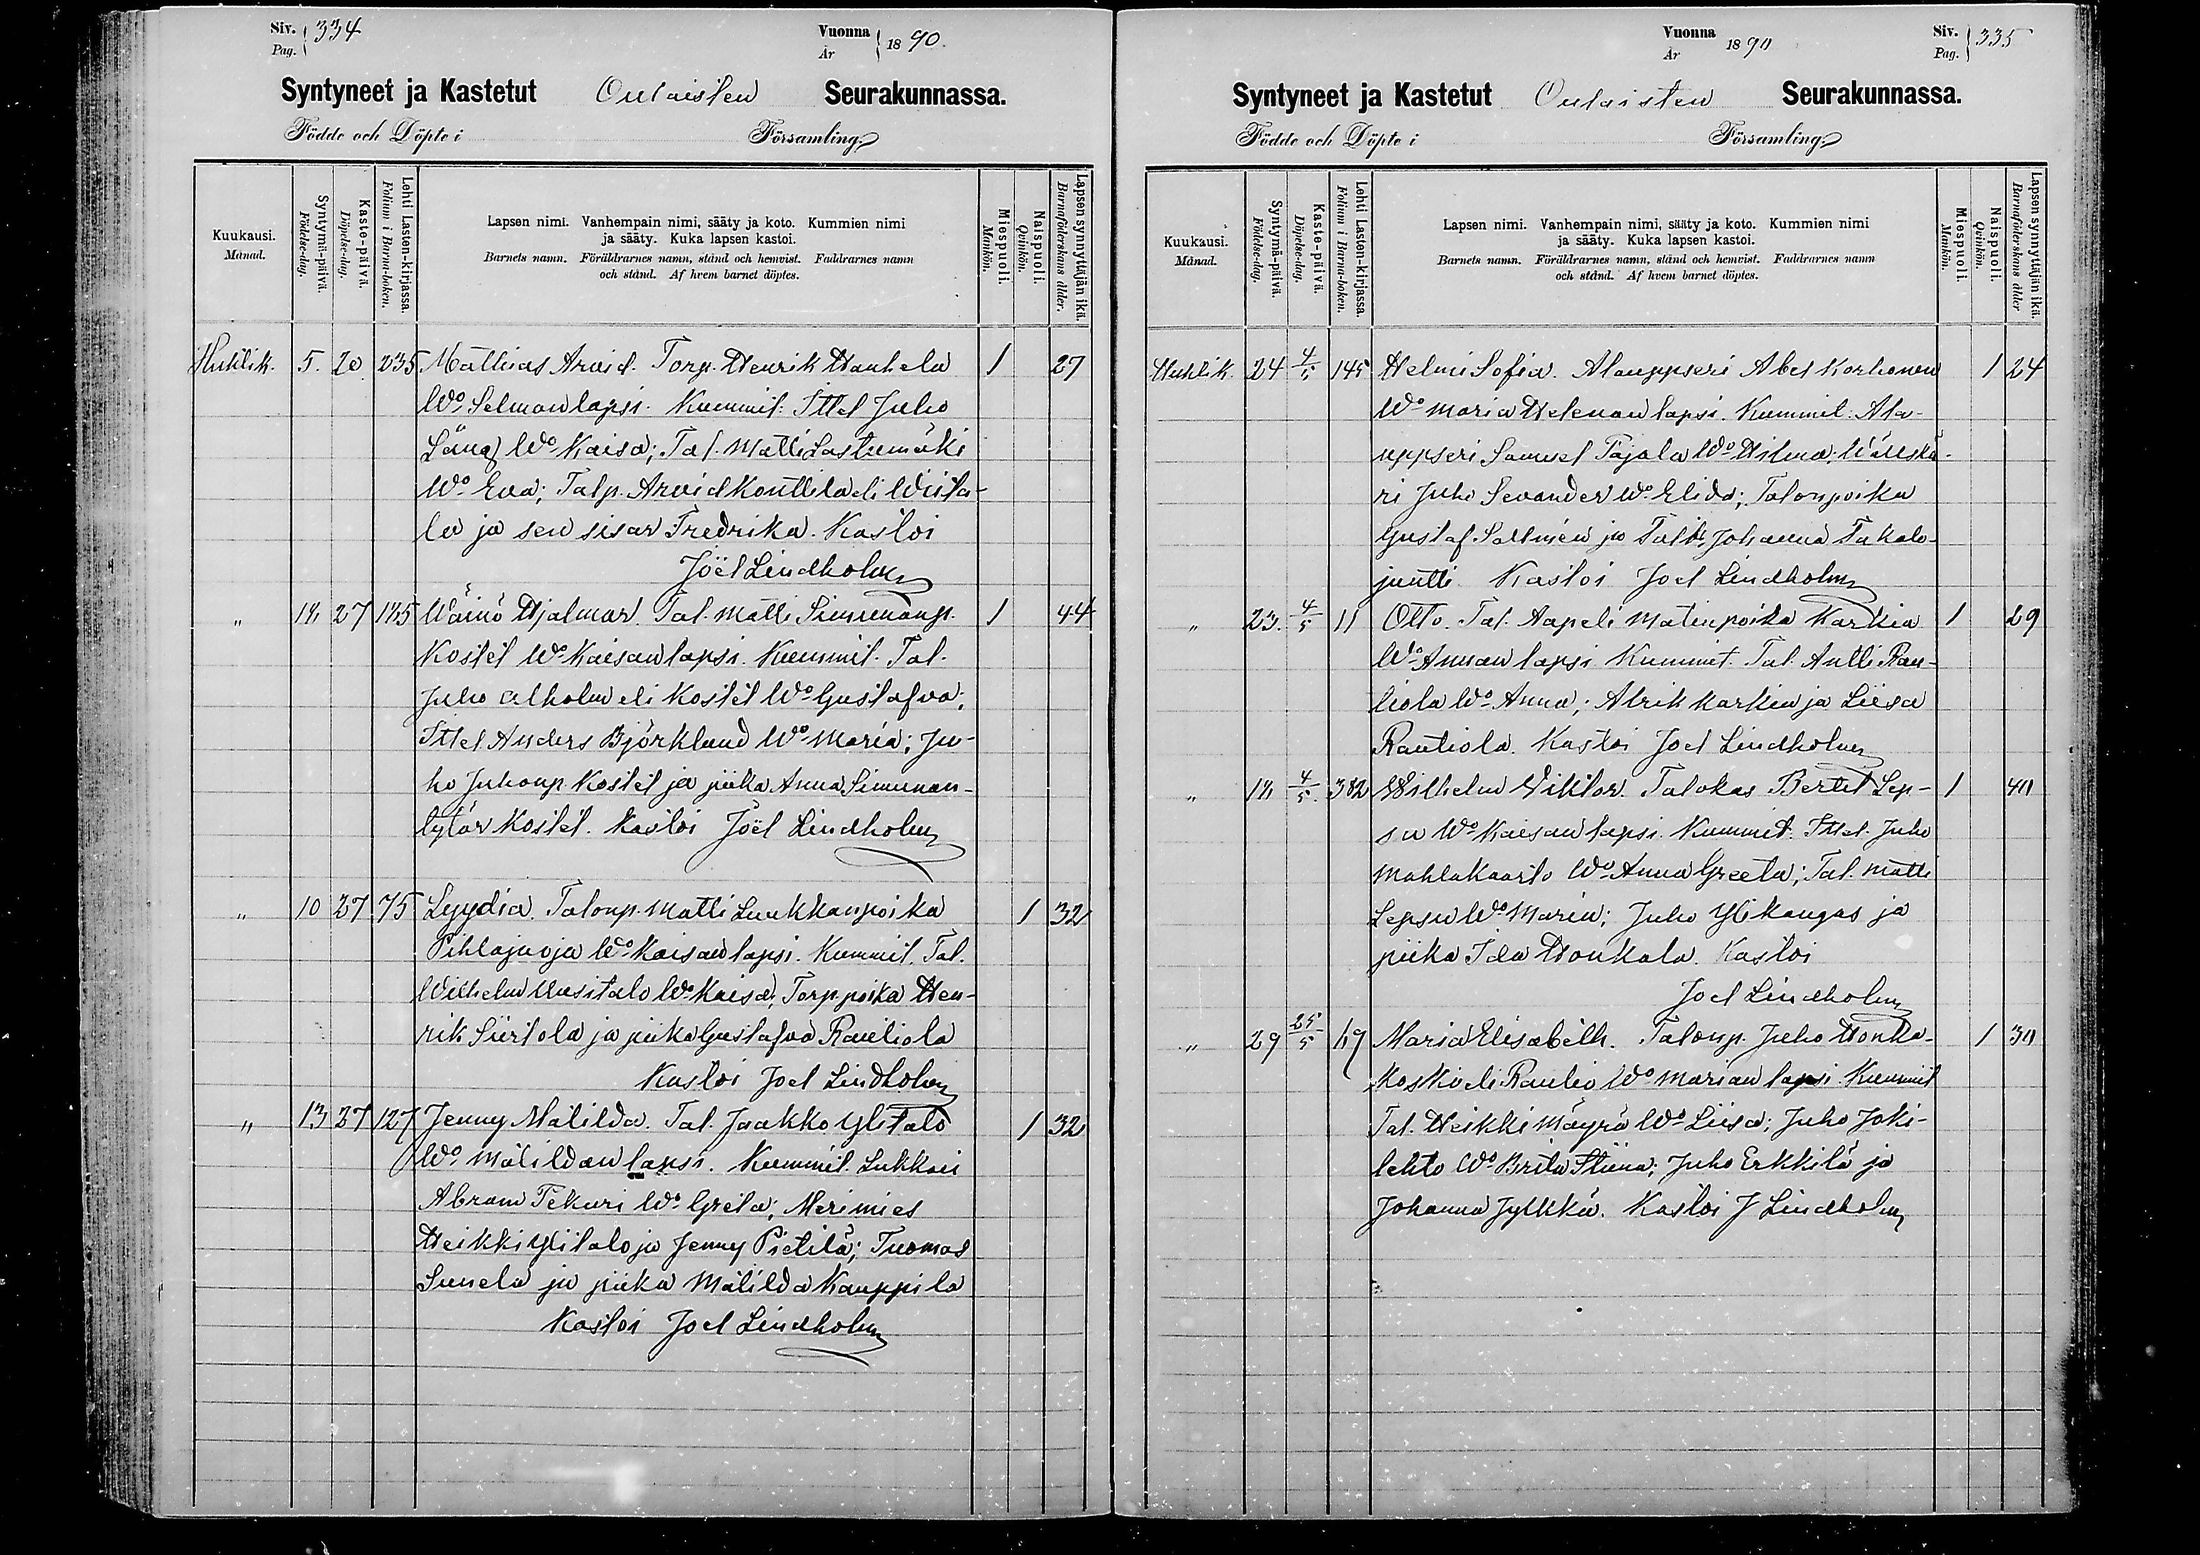 Siv. Pag. 334
Vuonna År 1890.
Syntyneet ja Kastetut Oulaisten Seurakunnassa.
Födde och Döpte i Församling.
Kuukausi. Månad.
Syntymä-päivä. Födelse-dag.
Kaste-päivä. Döpelse-dag.
Lehti Lasten-kirjassa. Folium i Barna-boken.
Lapsen nimi. Vanhempain nimi, sääty ja koto. Kummien nimi
ja sääty. Kuka lapsen kastoi.
Barnets namn. Föräldrarnes namn, stånd och hemvist. Faddrarnes namn
och stånd. Af hvem barnet döptes.
Miespuoli. Mankön.
Naispuoli. Qvinkön.
Lapsen synnyttäjän ikä. Barnaföderskans ålder.
Huhtik. 5. 20 235 Mathias Arvid. Torp. Henrik Hanhela 1 27
Wo Selman lapsi. Kummit: Ittel Juho
Lång Wo Kaisa; Tal. Matti Lastumäki
Wo Eva; Talp. Arvid Konttila eli Wiita-
la ja sen sisar Fredrika. Kastoi
Joël Lindholm
" 18 27 185 Wäinö Hjalmar. Tal. Matti Simunanp. 1 44
Kostet Wo Kaisan lapsi. Kummit. Tal.
Juho Alholm eli Kostet Wo Gustafva;
Ittel Anders Björklund Wo Maria; Ju-
ho Juhonp. Kostet ja piika Anna Simunan-
tytär Kostet. Kastoi Joël Lindholm
" 10 27 75 Lyydia. Talonp. Matti Luukkanpoika 1 32
Pihlajaoja Wo Kaisan lapsi. Kummit. Tal.
Wilhelm Uusitalo Wo Kaisa; Torppoika Hen-
rik Siirtola ja piika Gustafva Rautiola
Kastoi Joel Lindholm
" 13 27 127 Jenny Matilda. Tal. Jaakko Ylitalo 1 32
Wo Matildan lapsi. Kummit. Lukkari
Abram Tekuri Wo Greta; Merimies
Heikki Ylitalo ja Jenny Pietilä; Tuomas
Sunela ja piika Matilda Kauppila
Kastoi Joel Lindholm
Vuonna År 1890
Siv. Pag. 335
Syntyneet ja Kastetut Oulaisten Seurakunnassa.
Födde och Döpte i Församling.
Kuukausi. Månad.
Syntymä-päivä. Födelse-dag.
Kaste-päivä. Döpelse-dag.
Lehti Lasten-kirjassa. Folium i Barna-boken.
Lapsen nimi. Vanhempain nimi, sääty ja koto. Kummien nimi
ja sääty. Kuka lapsen kastoi.
Barnets namn. Föräldrarnes namn, stånd och hemvist. Faddrarnes namn
och stånd. Af hvem barnet döptes.
Miespuoli. Mankön.
Naispuoli. Qvinkön.
Lapsen synnyttäjän ikä. Barnaföderskans ålder
Huhtik. 24 4/5 145 Helmi Sofia. Alauppseri Abel Korhonen 1 24
Wo Maria Helenan lapsi. Kummit: Ala-
uppseri Samuel Pajala Wo Hilma; Wällskä-
ri Juho Sevander Wo Elida; Talonpoika
Gustaf Salmien ja Taltr. Johanna Takalo-
juntti Kastoi Joel Lindholm
" 23. 4/5 11 Otto. Tal. Aapeli Matinpoika Karkia 1 29
Wo Annan lapsi. Kummit. Tal. Antti Rau-
tiola Wo Anna; Alrik Karkia ja Liisa
Rautiola. Kastoi Joel Lindholm
" 18 4/5. 382 Wilhelm Viktor. Talokas Bertel Lep- 1 40
su Wo Kaisan lapsi. Kummit. Ittel. Juho
Mahlakaarto Wo Anna Greeta; Tal. Matti
Lepsu Wo Maria; Juho Ylikangas ja
piika Ida Honkala. Kastoi
Joel Lindholm
" 29 25/5 Maria Elisabeth. Talonp. Juho Honka- 1 30
koski eli Rautio Wo Marian lapsi. Kummit
Tal. Heikki Mäyrä Wo Liisa; Juho Joki-
lehto Wo Brita Stiina; Juho Erkkilä ja
Johanna Jylkkä. Kastoi J Lindholm